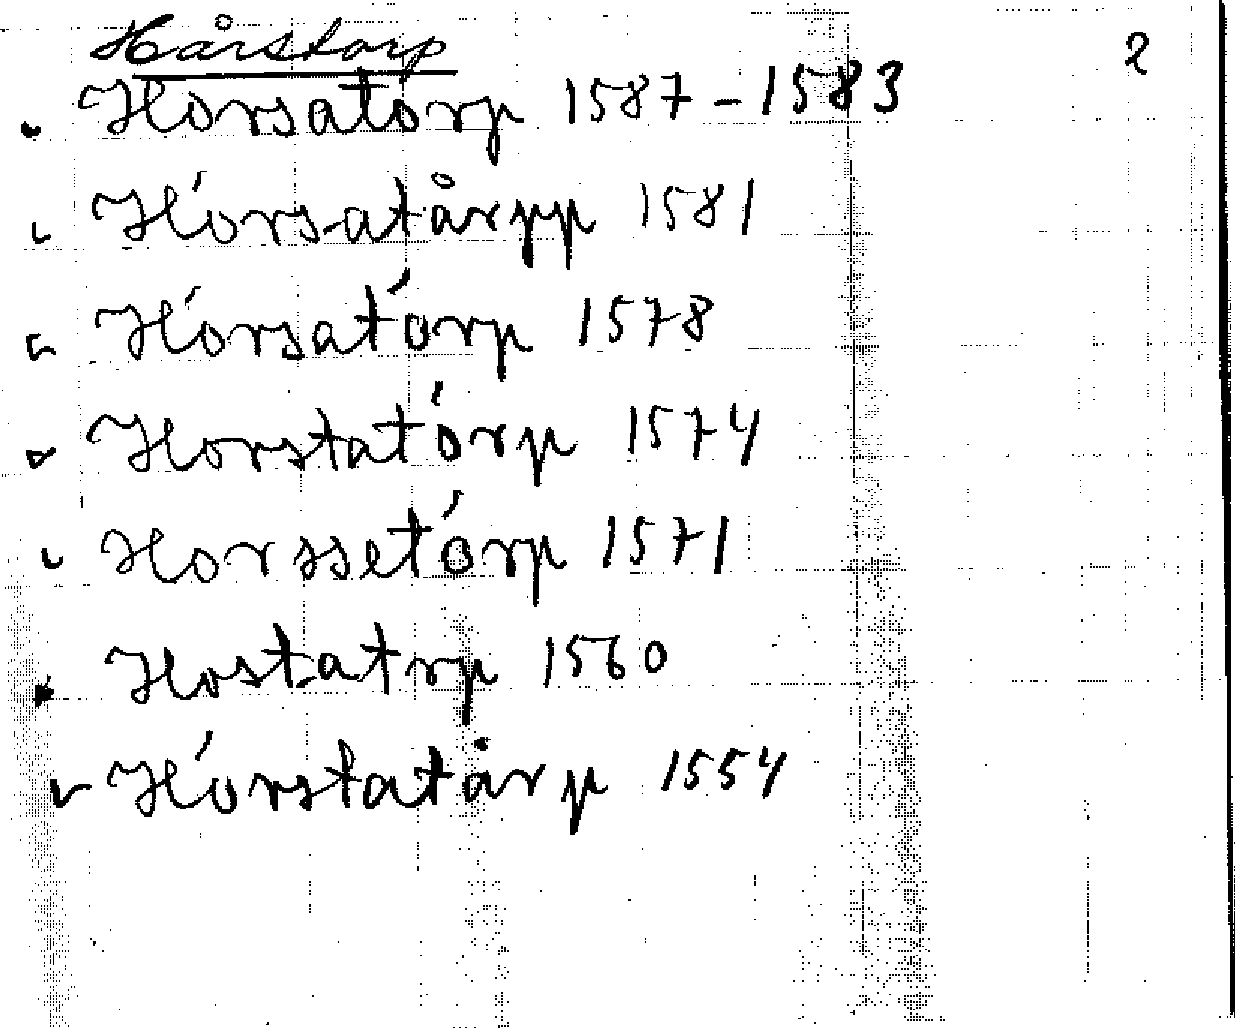 Hårstorp
2
Horsatorp 1587-1583
Hórsatårpp 1581
Hórsatórp 1578
Horstatórp 1574
Horssetórp 1571
Hostatrp 1560
Hórstatårp 1554